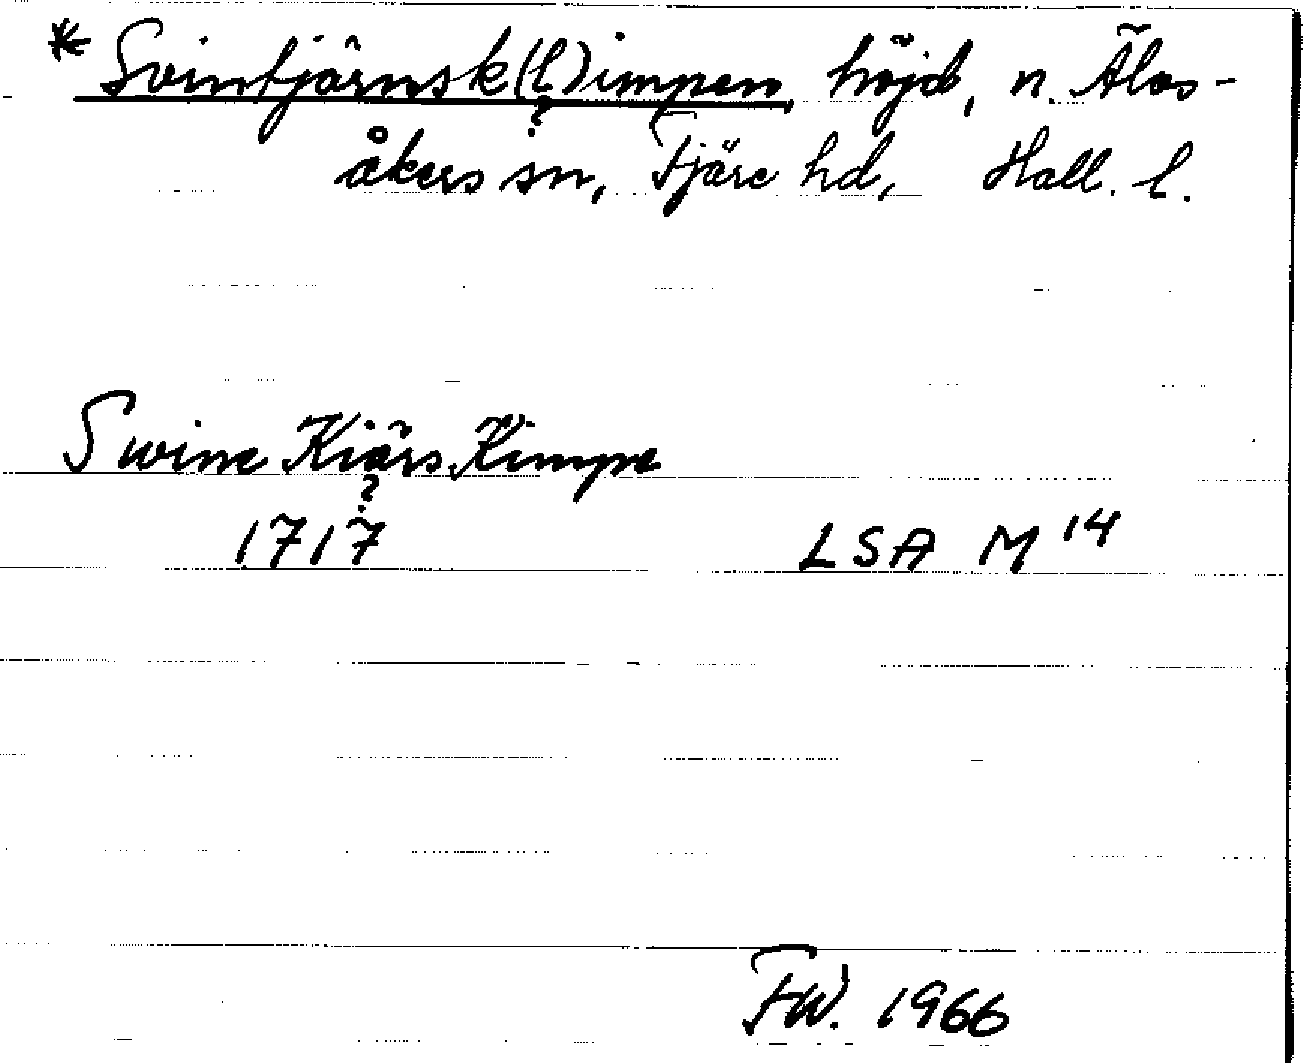 * Svintjärnsk(l)impen, höjd, n. Älvs-
?
åkers sn, Fjäre hd, Hall. l.
Swine Kiärs Kimpe
?
1717 LSA M 14
FW. 1966